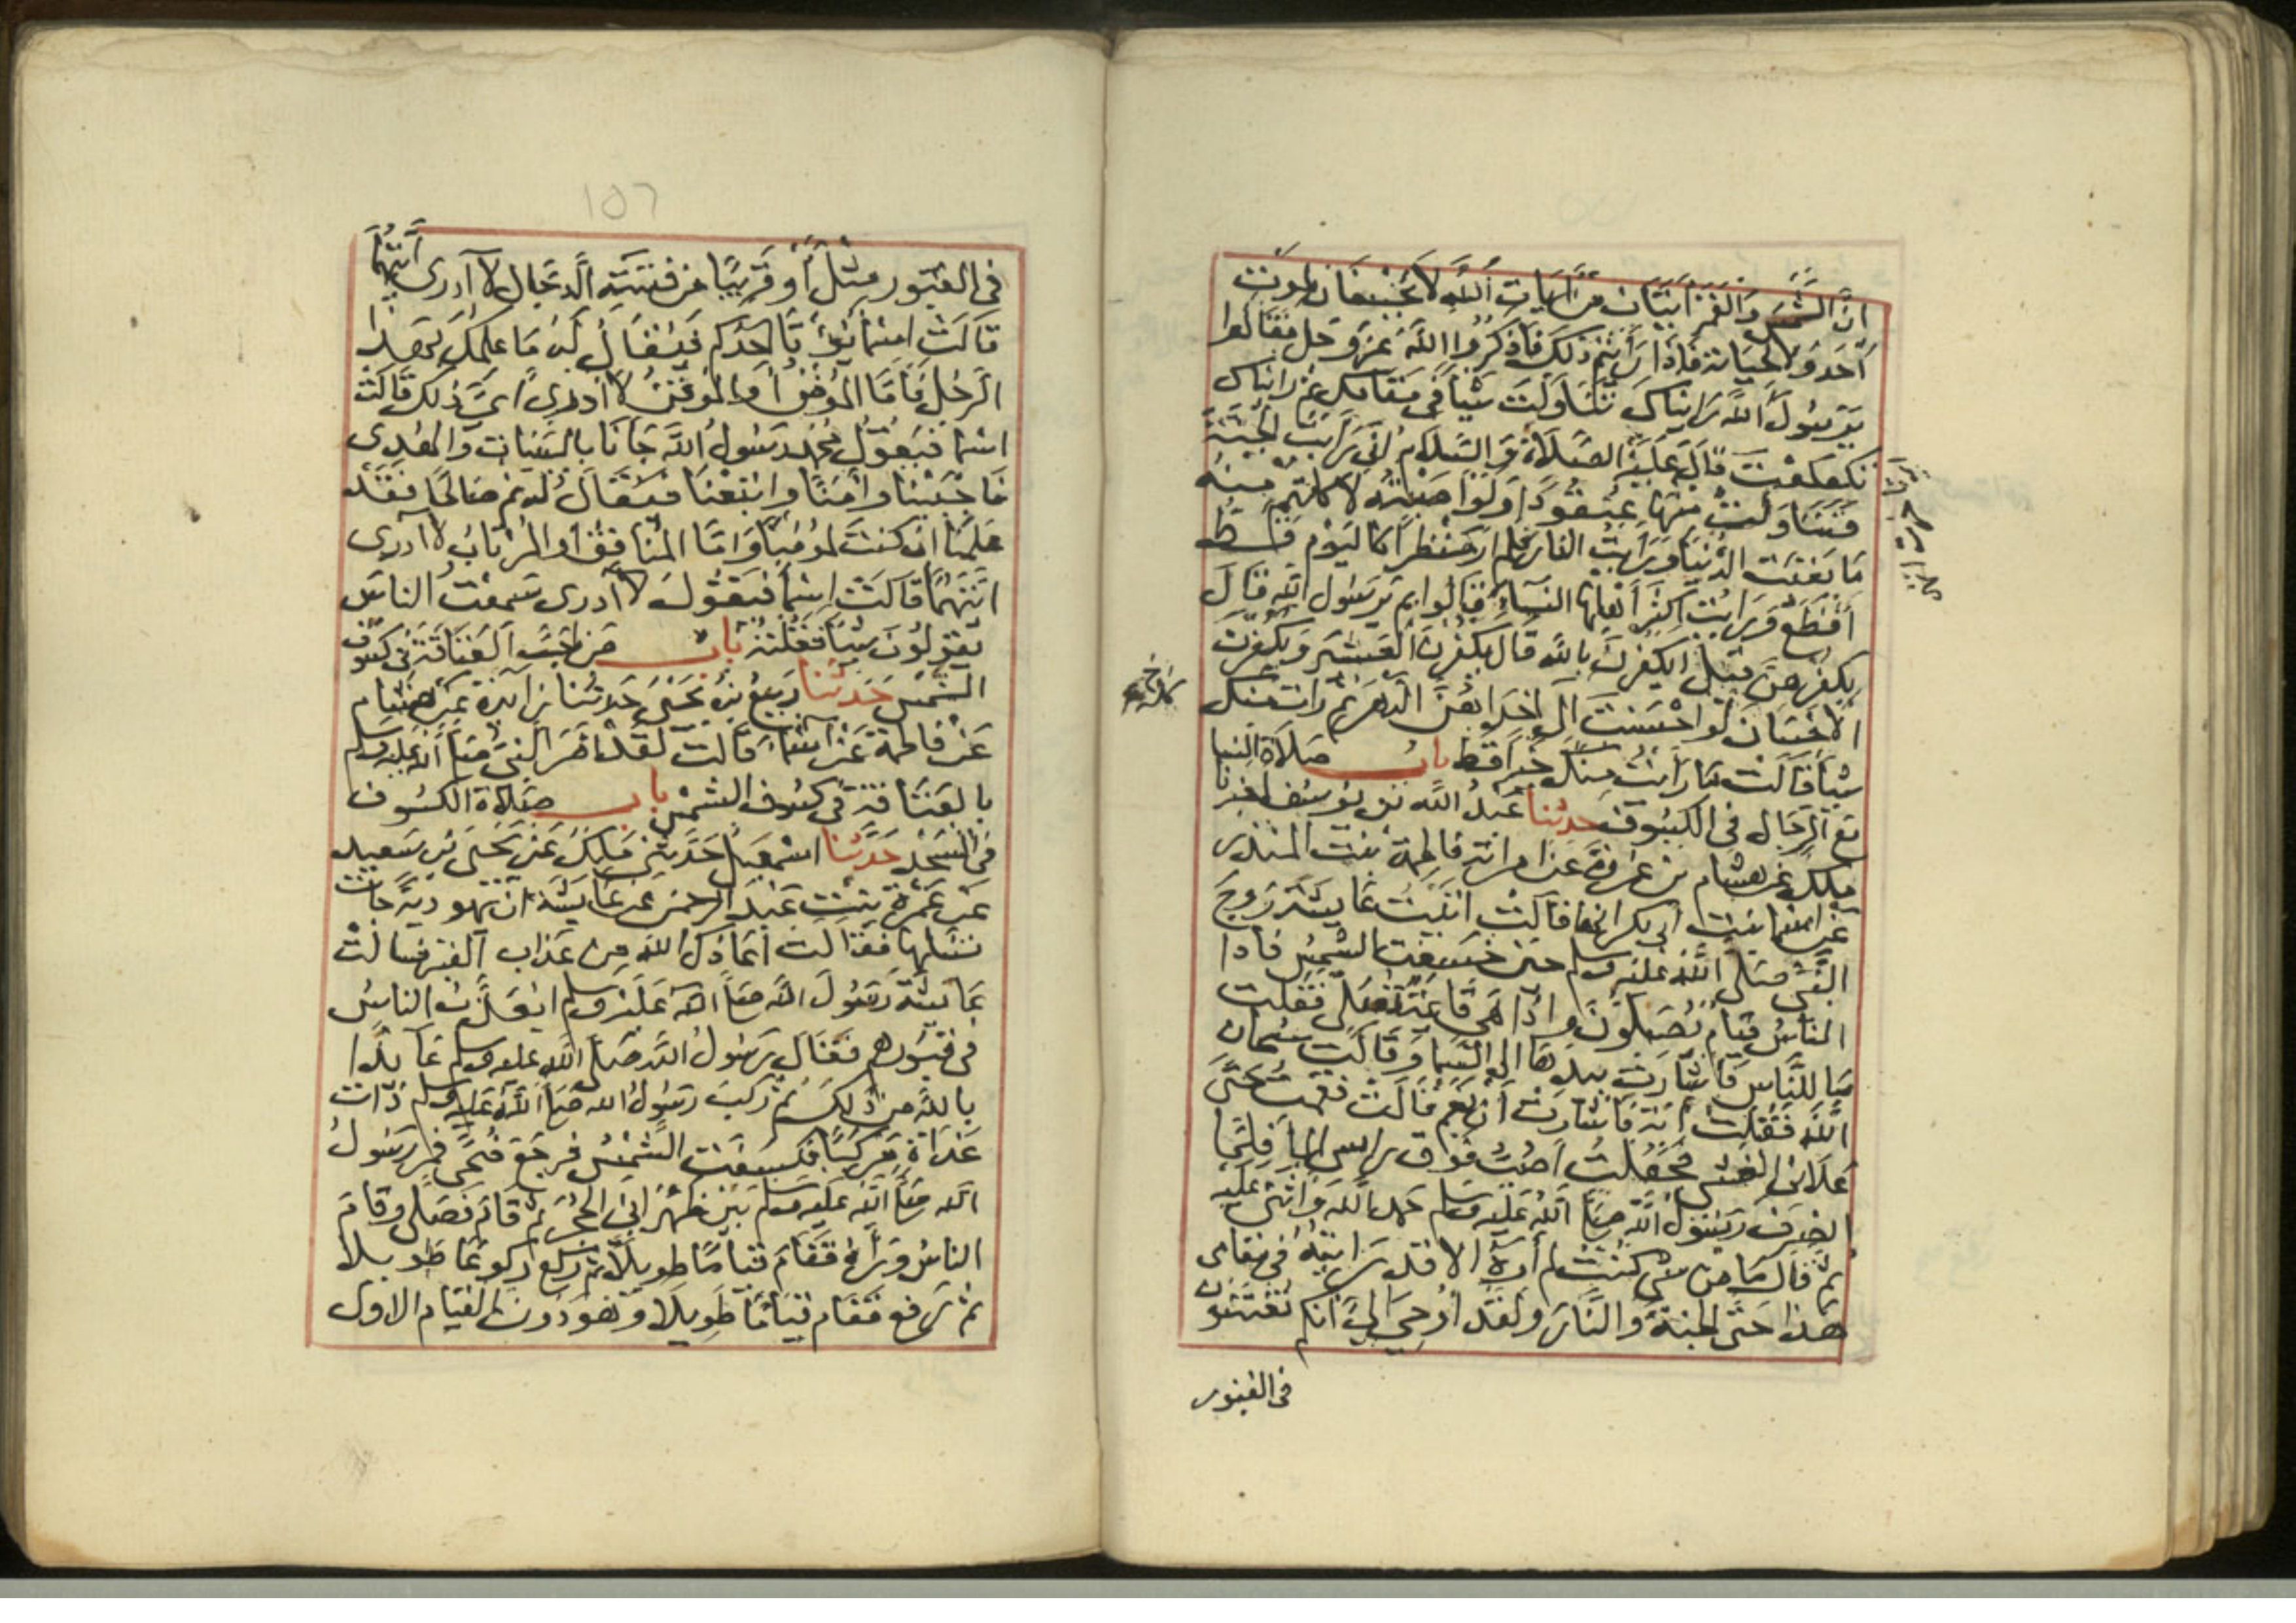 ان الشمس والقمر ايتان من ايات الله لا يخسفان لموت
احد ولا لحياته فاذا رايتم ذلك فاذكروا الله عز وجل فقالوا
يرسول الله رايناك تناولت شيا في مقامك ثم رايناك
تكعكعت قال عليه الصلاة والسلام اني رايت الجنة
فتناولت منها عنقودا ولو اصبته لاكلتم منه
ما بقيت الدنيا ورايت النار فلم ار منظرا كاليوم قط
افظع ورايت اكثر اهلها النساء قالوا بم يرسول الله قال
بكفرهن قيل ايكفرن بالله قال يكفرن العشير ويكفرن
الاحسان لو احسنت الى احداهن الدهر ثم رات منك
شيا قالت ما رايت منك خيرا قط باب صلاة النسا
مع الرجال في الكسوف حدثنا عبد الله بن يوسف اخبرنا
ملك عن هشام بن عروة عن امراته فاطمة بنت المنذر
عن اسما بنت ابي بكر انها قالت اتيت عايشة زوج
النبي صلى الله عليه وسلم حين خسفت الشمس فاذا
الناس قيام يصلون واذا هي قايمة تصلي فقلت
ما للناس فاشارت بيدها الى السما وقالت سبحان
الله فقلت اية فاشارت ان نعم قالت فقمت حتى
علاني الغشي فجعلت اصب فوق راسي الما فلما
انصرف رسول الله صلى الله عليه وسلم حمد الله واثنى عليه
ثم قال ما من شي كنت لم اره الا قد رايته في مقامي
هذا حتى الجنة والنار ولقد اوحي الي انكم تفتنون
في القبور
١٥٦
في القبور مثل او قريبا من فتنة الدجال لا ادري ايتهما
قالت اسما يوتى احدكم فيقال له ما علمك بهذا
الرجل فاما المومن او الموقن لا ادري اي ذلك قالت
اسما فيقول محمد رسول الله جانا بالبينات والهدى
فاجبنا وامنا واتبعنا فيقال له نم صالحا فقد
علمنا ان كنت لمومنا واما المنافق او المرتاب لا ادري
ايتهما قالت اسما فيقول لا ادري سمعت الناس
يقولون شيا فقلته باب من احب العتاقة في كسوف
الشمس حدثنا ربيع بن يحيى حدثنا زايدة عن هشام
عن فاطمة عن اسماء قالت لقد امر النبي صلى الله عليه وسلم
بالعتاقة في كسوف الشمس باب صلاة الكسوف
في المسجد حدثنا اسمعيل حدثني ملك عن يحيى بن سعيد
عن عمرة بنت عبد الرحمن عن عايشة ان يهودية جات
تسالها فقالت اعاذك الله من عذاب القبر فسالت
عايشة رسول الله صلى الله عليه وسلم ايعذب الناس
في قبورهم فقال رسول الله صلى الله عليه وسلم عايذا
بالله من ذلك ثم ركب رسول الله صلى الله عليه وسلم ذات
غداة مركبا فكسفت الشمس فرجع ضحى فمر رسول
الله صلى الله عليه وسلم بين ظهراني الحجر ثم قام فصلى وقام
الناس وراه فقام قياما طويلا ثم ركع ركوعا طويلا
ثم رفع فقام قياما طويلا وهو دون القيام الاول